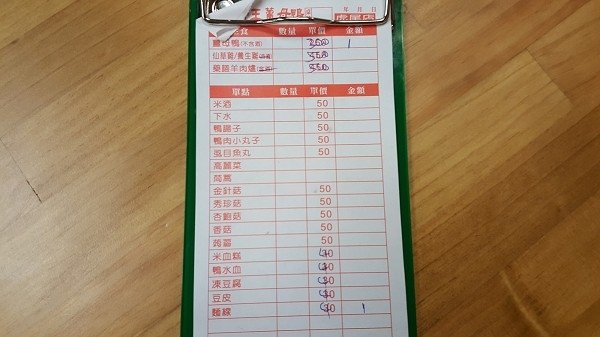 薑母鴨
年 月 日
虎尾店
食 數量 單價 金額
薑母鴨(不含酒) 1
仙草雞/養生雞
藥膳羊肉爐(含酒) 350
單點 數量 單價 金額
米酒 50
下水 50
鴨腸子 50
鴨肉小丸子 50
虱目魚丸 50
高麗菜
茼蒿
金針菇 50
秀珍菇 50
杏鮑菇 50
香菇 50
蒟蒻 50
米血糕 40
鴨水血 40
凍豆腐 40
豆皮 40
麵線 40 1